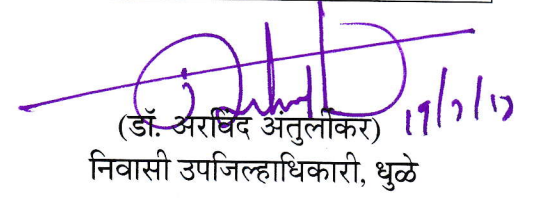 (डॉ. अरविंद अंतुर्लीकर)
निवासी उपजिल्हाधिकारी, धुळे